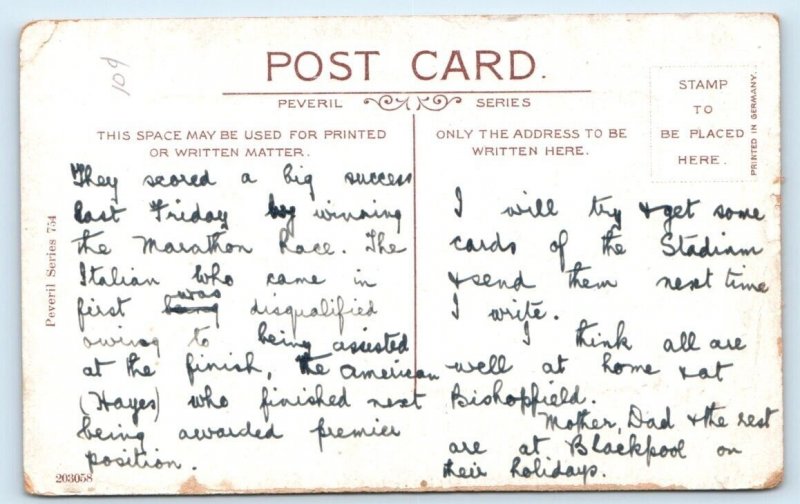 109
POST CARD.
PEVERIL SERIES
THIS SPACE MAY BE USED FOR PRINTED
OR WRITTEN MATTER.
ONLY THE ADDRESS TO BE
WRITTEN HERE.
STAMP
TO
BE PLACED
HERE.
PRINTED IN GERMANY.
Peveril Series 754
They scored a big success
last Friday by winning
the Marathon Race. The
Italian who came in
first was disqualified
owing to being assisted
at the finish, the American
(Hayes) who finished next
being awarded premier
position.
203058
I will try & get some
cards of the Stadium
& send them next time
I write.
I think all are
well at home & at
Bishopfield.
Mother, Dad & the rest
are at Blackpool on
their holidays.